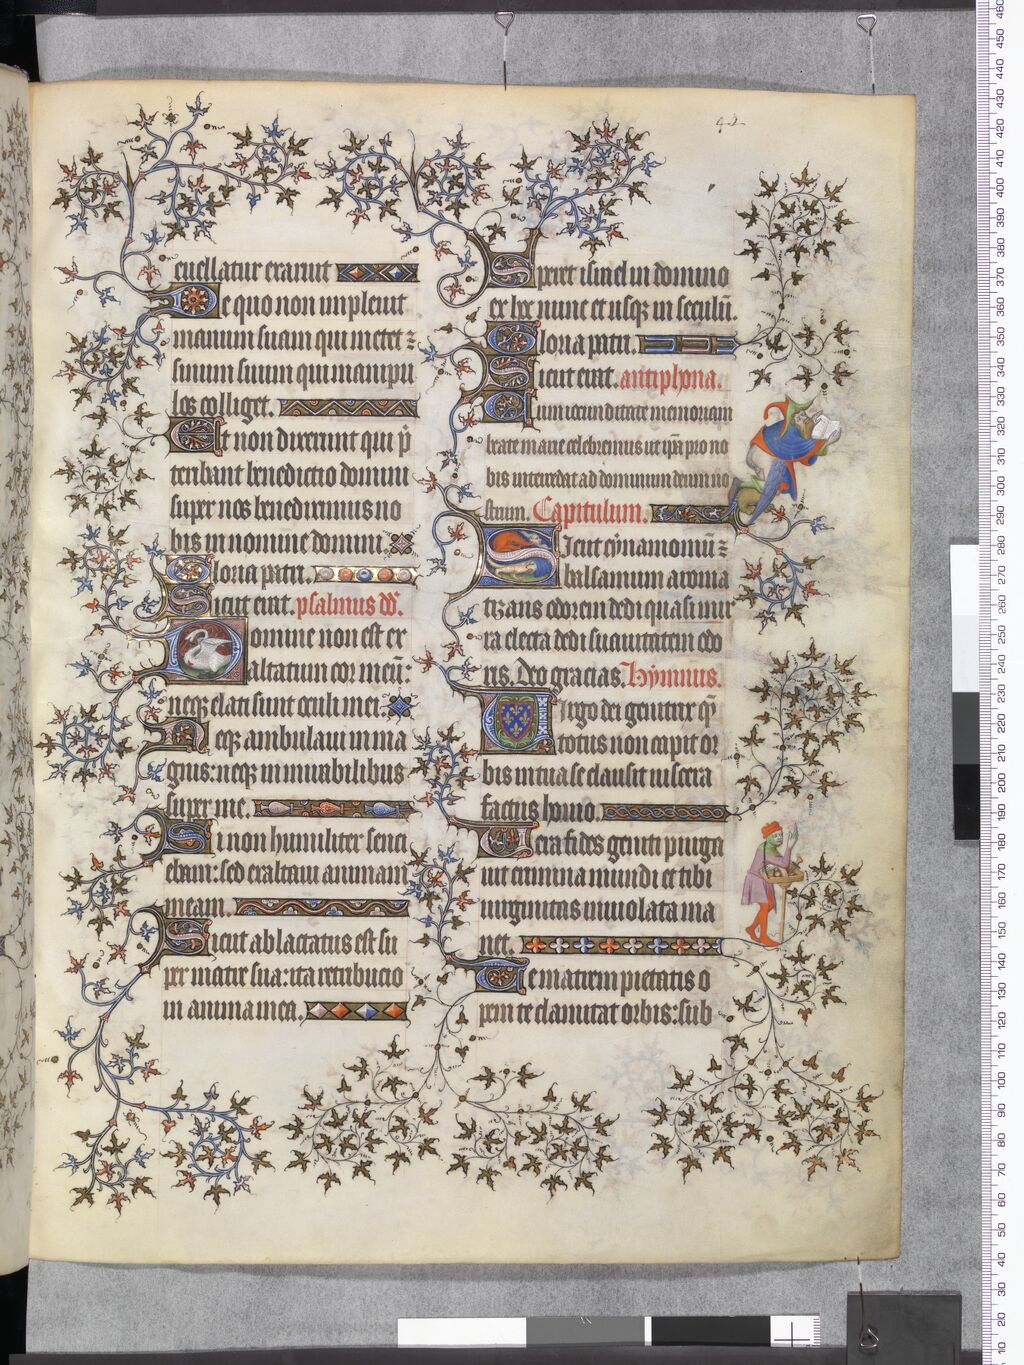 42
euellatur exaruit
De quo non impleuit
manum suam qui metet ⁊
sinum suum qui manipu
los colliget.
Et non dixerunt qui p̄
teribant benedictio domini
super uos benediximus uo
bis in nomine domini
Gloria patri.
Sicut erat. psalmus dd̄.
Domine non est ex
altatum cor meū:
neqꝫ elati sunt oculi mei
Neqꝫ ambulaui in ma
gnis: neqꝫ in mirabilibus
super me.
Si non humiliter senci
ebam: sed exaltaui animam
meam.
Sicut ablactatus est su
per matre sua: ita retribucio
in anima mea.
Speret israel in domino
ex hoc nunc et usqꝫ in seculū.
Gloria patri.
Sicut erat. antiphona.
Cum iocunditate memoriam
beate marie celebremus ut ip̄a pro no
bis intercedat ad dominum deum no
strum. Capitulum.
Sicut cynamomū ⁊
balsamum aroma
tizans odorem dedi quasi mir
ra electa dedi suauitatem odo
ris. Deo gracias. Hymnus.
Uirgo dei genitrix q̄
totus non capit or
bis in tua se clausit uiscera
factus homo.
Uera fides geniti purga
uit crimina mundi et tibi
uirginitas inuiolata ma
net.
Te matrem pietatis o
pem te clamitat orbis: sub